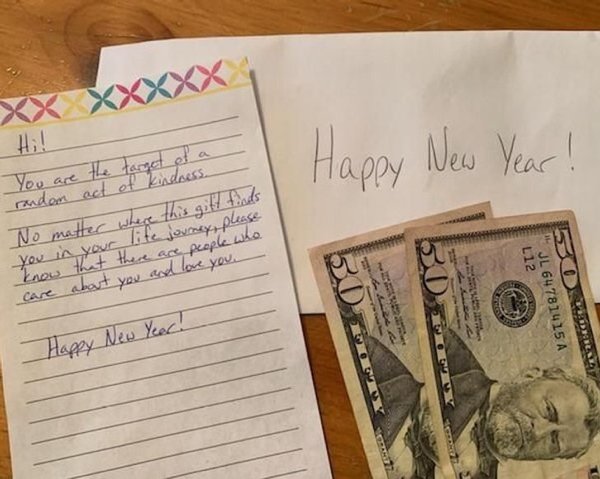 Hi!
You are the target of a
random act of kindness.
No matter where this gift finds
you in your life journey, please
know that there are people who
care about you and love you.
Happy New Year!
Happy New Year!
50
50
JL64781415A
L12
50